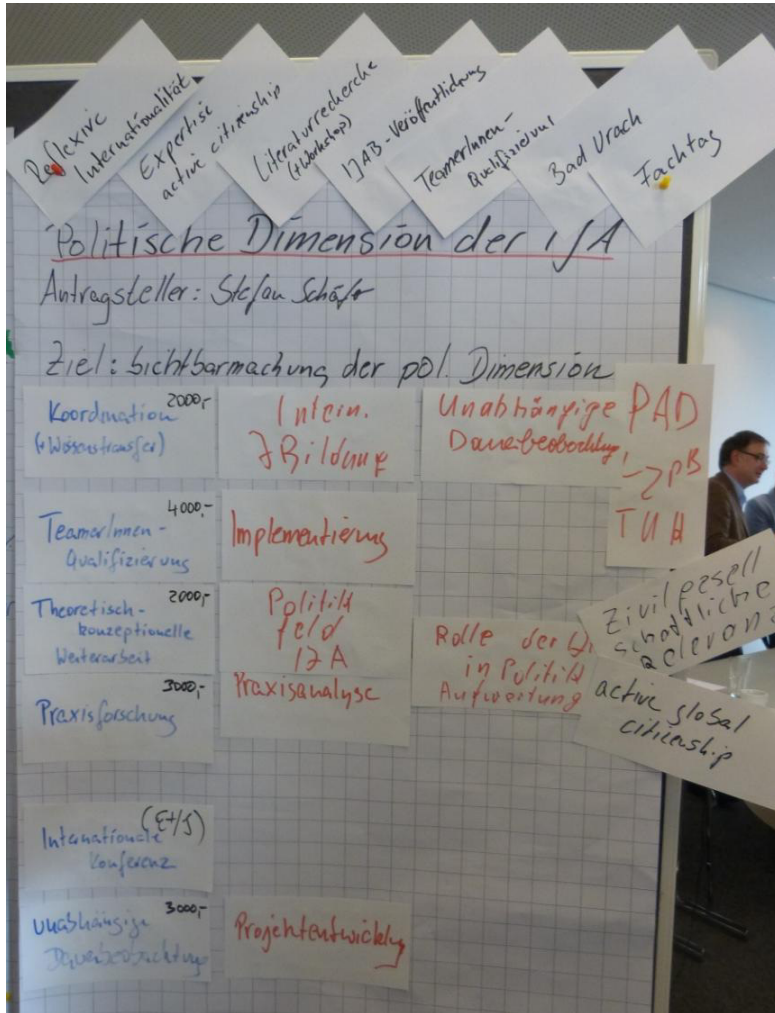 Reflexive
Internationalität
Expertise
active citizenship
Literaturrecherche
(+Workshop)
IJAB-Veröffentlichung
TeamerInnen-
Qualifizierung
Bad Urach
Fachtag
Politische Dimension der IJA
Antragsteller: Stefan Schäfer
Ziel: Sichtbarmachung der pol. Dimension
Koordination 2000,-
(+Wissenstransfer)
Intern.
JBildung
Unabhängige
Dauerbeobachtung
PAD
->PB
TUH
TeamerInnen- 4000,-
Qualifizierung
Implementierung
Theoretisch- 2000,-
konzeptionelle
Weiterarbeit
Politik
feld
IJA
Rolle der
in Politik
Aufwertung
Zivilgesell
schaftliche
Relevanz
active global
citizenship
Praxisforschung 3000,-
Praxisanalyse
Internationale (E+/J)
Konferenz
unabhängige 3000,-
Dauerbeobachtung
Projektentwicklung